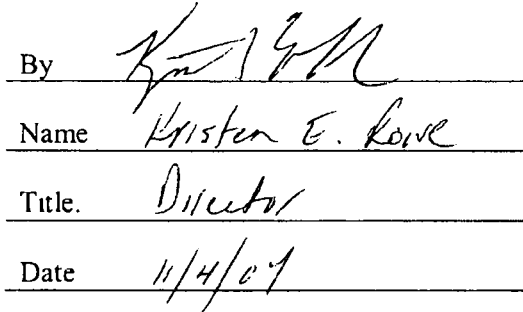 By
Name Kristen E. Rowe
Title. Director
Date 11/4/09